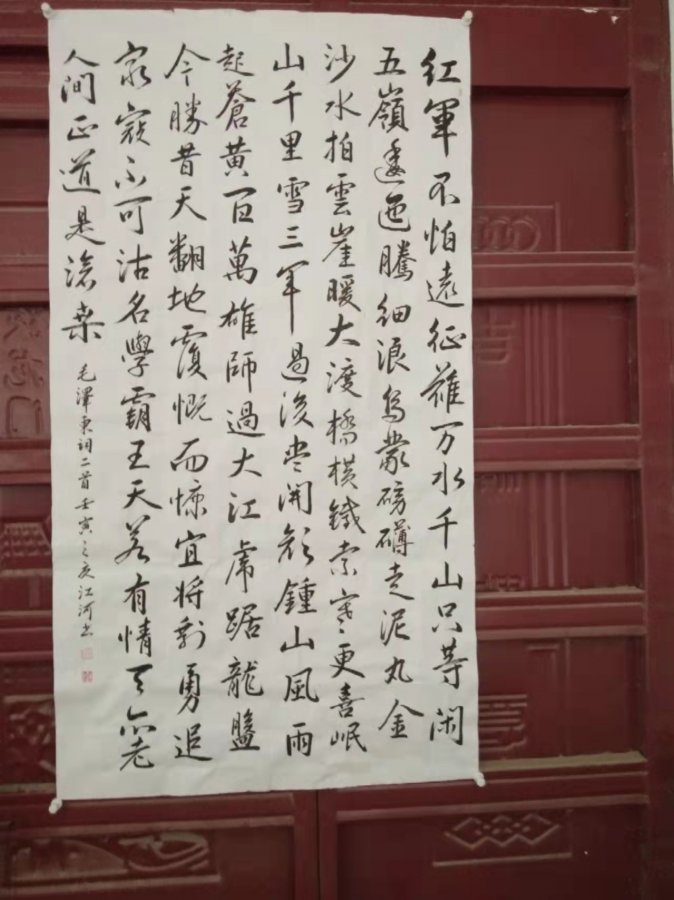 红軍不怕遠征難万水千山只等闲
五嶺逶迤騰细浪烏蒙磅礴走泥丸金
沙水拍雲崖暖大渡橋横鐵索寒更喜岷
山千里雪三军過後尽開颜鍾山風雨
起蒼黄百萬雄師過大江虎踞龍盤
今勝昔天翻地覆慨而慷宜将剩勇追
窮寇不可沽名學霸王天若有情天亦老
人间正道是滄桑
毛澤東词二首壬寅之夏江河书